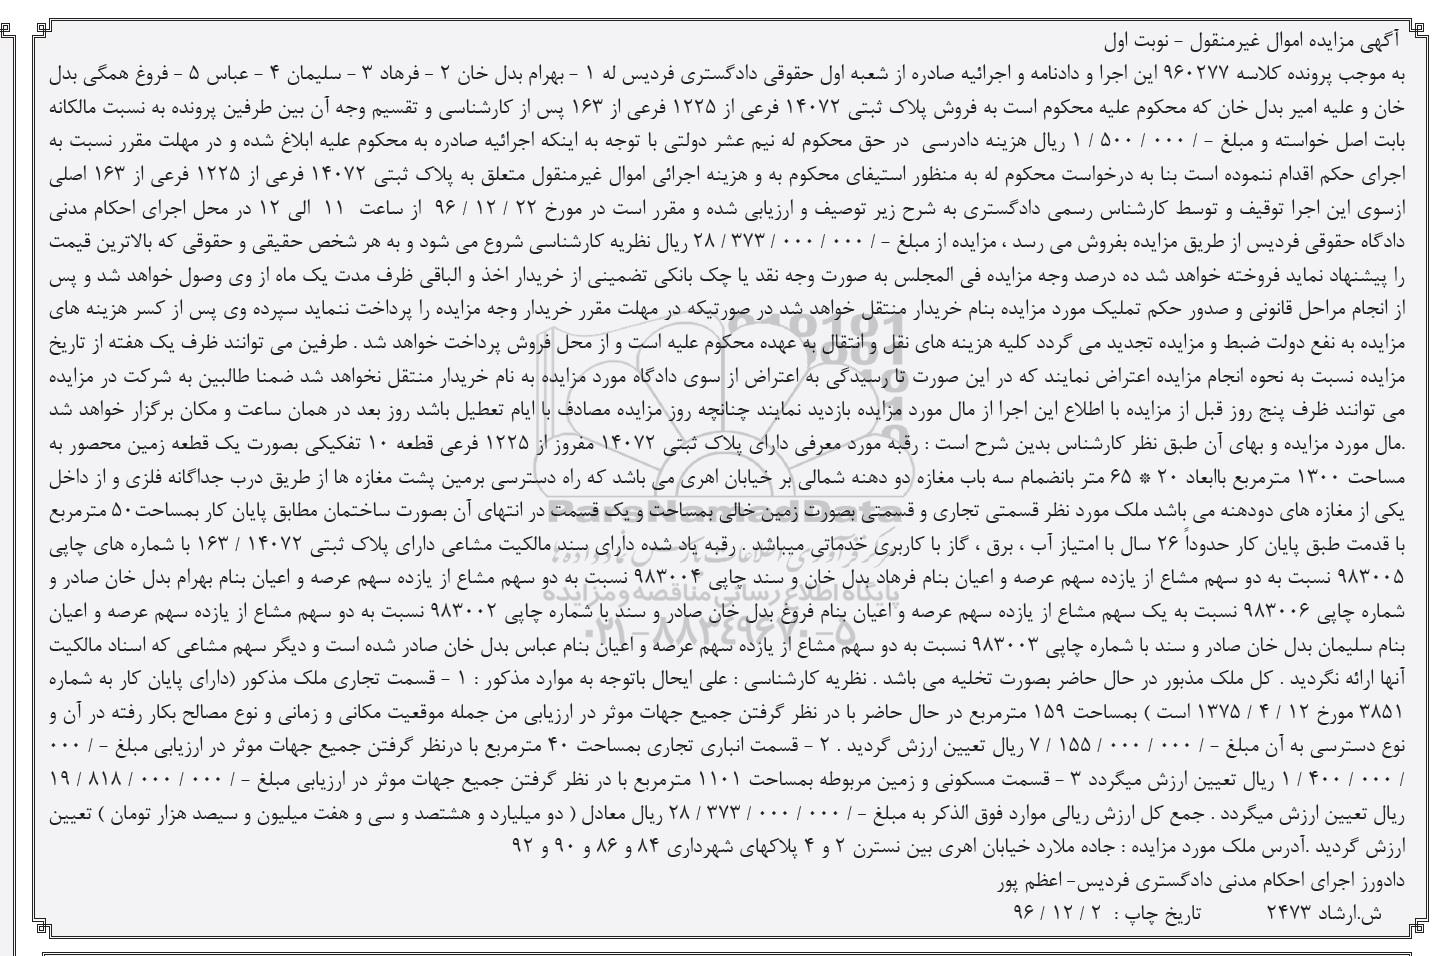 آگهی مزایده اموال غیرمنقول - نوبت اول
به موجب پرونده کلاسه ۹۶۰۲۷۷ این اجرا و دادنامه و اجرائیه صادره از شعبه اول حقوقی دادگستری فردیس له ۱ - بهرام بدل خان ۲ - فرهاد ۳ - سلیمان ۴ - عباس ۵ - فروغ همگی بدل
خان و علیه امیر بدل خان که محکوم علیه محکوم است به فروش پلاک ثبتی ۱۴۰۷۲ فرعی از ۱۲۲۵ فرعی از ۱۶۳ پس از کارشناسی و تقسیم وجه آن بین طرفین پرونده به نسبت مالکانه
بابت اصل خواسته و مبلغ - / ۰۰۰ / ۵۰۰ / ۱ ریال هزینه دادرسی در حق محکوم له نیم عشر دولتی با توجه به اینکه اجرائیه صادره به محکوم علیه ابلاغ شده و در مهلت مقرر نسبت به
اجرای حکم اقدام ننموده است بنا به درخواست محکوم له به منظور استیفای محکوم به و هزینه اجرائی اموال غیرمنقول متعلق به پلاک ثبتی ۱۴۰۷۲ فرعی از ۱۲۲۵ فرعی از ۱۶۳ اصلی
ازسوی این اجرا توقیف و توسط کارشناس رسمی دادگستری به شرح زیر توصیف و ارزیابی شده و مقرر است در مورخ ۲۲ / ۱۲ / ۹۶ از ساعت ۱۱ الی ۱۲ در محل اجرای احکام مدنی
دادگاه حقوقی فردیس از طریق مزایده بفروش می رسد ، مزایده از مبلغ - / ۰۰۰ / ۰۰۰ / ۳۷۳ / ۲۸ ریال نظریه کارشناسی شروع می شود و به هر شخص حقیقی و حقوقی که بالاترین قیمت
را پیشنهاد نماید فروخته خواهد شد ده درصد وجه مزایده فی المجلس به صورت وجه نقد یا چک بانکی تضمینی از خریدار اخذ و الباقی ظرف مدت یک ماه از وی وصول خواهد شد و پس
از انجام مراحل قانونی و صدور حکم تملیک مورد مزایده بنام خریدار منتقل خواهد شد در صورتیکه در مهلت مقرر خریدار وجه مزایده را پرداخت ننماید سپرده وی پس از کسر هزینه های
مزایده به نفع دولت ضبط و مزایده تجدید می گردد کلیه هزینه های نقل و انتقال به عهده محکوم علیه است و از محل فروش پرداخت خواهد شد . طرفین می توانند ظرف یک هفته از تاریخ
مزایده نسبت به نحوه انجام مزایده اعتراض نمایند که در این صورت تا رسیدگی به اعتراض از سوی دادگاه مورد مزایده به نام خریدار منتقل نخواهد شد ضمنا طالبین به شرکت در مزایده
می توانند ظرف پنج روز قبل از مزایده با اطلاع این اجرا از مال مورد مزایده بازدید نمایند چنانچه روز مزایده مصادف با ایام تعطیل باشد روز بعد در همان ساعت و مکان برگزار خواهد شد
.مال مورد مزایده و بهای آن طبق نظر کارشناس بدین شرح است : رقبه مورد معرفی دارای پلاک ثبتی ۱۴۰۷۲ مفروز از ۱۲۲۵ فرعی قطعه ۱۰ تفکیکی بصورت یک قطعه زمین محصور به
مساحت ۱۳۰۰ مترمربع باابعاد ۲۰ * ۶۵ متر بانضمام سه باب مغازه دو دهنه شمالی بر خیابان اهری می باشد که راه دسترسی برمین پشت مغازه ها از طریق درب جداگانه فلزی و از داخل
یکی از مغازه های دودهنه می باشد ملک مورد نظر قسمتی تجاری و قسمتی بصورت زمین خالی بمساحت و یک قسمت در انتهای آن بصورت ساختمان مطابق پایان کار بمساحت۵۰ مترمربع
با قدمت طبق پایان کار حدوداً ۲۶ سال با امتیاز آب ، برق ، گاز با کاربری خدماتی میباشد . رقبه یاد شده دارای سند مالکیت مشاعی دارای پلاک ثبتی ۱۴۰۷۲ / ۱۶۳ با شماره های چاپی
۹۸۳۰۰۵ نسبت به دو سهم مشاع از یازده سهم عرصه و اعیان بنام فرهاد بدل خان و سند چاپی ۹۸۳۰۰۴ نسبت به دو سهم مشاع از یازده سهم عرصه و اعیان بنام بهرام بدل خان صادر و
شماره چاپی ۹۸۳۰۰۶ نسبت به یک سهم مشاع از یازده سهم عرصه و اعیان بنام فروغ بدل خان صادر و سند با شماره چاپی ۹۸۳۰۰۲ نسبت به دو سهم مشاع از یازده سهم عرصه و اعیان
بنام سلیمان بدل خان صادر و سند با شماره چاپی ۹۸۳۰۰۳ نسبت به دو سهم مشاع از یازده سهم عرصه و اعیان بنام عباس بدل خان صادر شده است و دیگر سهم مشاعی که اسناد مالکیت
آنها ارائه نگردید . کل ملک مذبور در حال حاضر بصورت تخلیه می باشد . نظریه کارشناسی : علی ایحال باتوجه به موارد مذکور : ۱ - قسمت تجاری ملک مذکور (دارای پایان کار به شماره
۳۸۵۱ مورخ ۱۲ / ۴ / ۱۳۷۵ است ) بمساحت ۱۵۹ مترمربع در حال حاضر با در نظر گرفتن جمیع جهات موثر در ارزیابی من جمله موقعیت مکانی و زمانی و نوع مصالح بکار رفته در آن و
نوع دسترسی به آن مبلغ - / ۰۰۰ / ۰۰۰ / ۱۵۵ / ۷ ریال تعیین ارزش گردید . ۲ - قسمت انباری تجاری بمساحت ۴۰ مترمربع با درنظر گرفتن جمیع جهات موثر در ارزیابی مبلغ - / ۰۰۰
/ ۰۰۰ / ۴۰۰ / ۱ ریال تعیین ارزش میگردد ۳ - قسمت مسکونی و زمین مربوطه بمساحت ۱۱۰۱ مترمربع با در نظر گرفتن جمیع جهات موثر در ارزیابی مبلغ - / ۰۰۰ / ۰۰۰ / ۸۱۸ / ۱۹
ریال تعیین ارزش میگردد . جمع کل ارزش ریالی موارد فوق الذکر به مبلغ - / ۰۰۰ / ۰۰۰ / ۳۷۳ / ۲۸ ریال معادل ( دو میلیارد و هشتصد و سی و هفت میلیون و سیصد هزار تومان ) تعیین
ارزش گردید .آدرس ملک مورد مزایده : جاده ملارد خیابان اهری بین نسترن ۲ و ۴ پلاکهای شهرداری ۸۴ و ۸۶ و ۹۰ و ۹۲
دادورز اجرای احکام مدنی دادگستری فردیس- اعظم پور
ش.ارشاد ۲۴۷۳ تاریخ چاپ : ۲ / ۱۲ / ۹۶
ParsNamadData
پایگاه اطلاع رسانی مناقصه و مزایده
۰۲۱-۸۸۳۴۹۶۷۰-۵